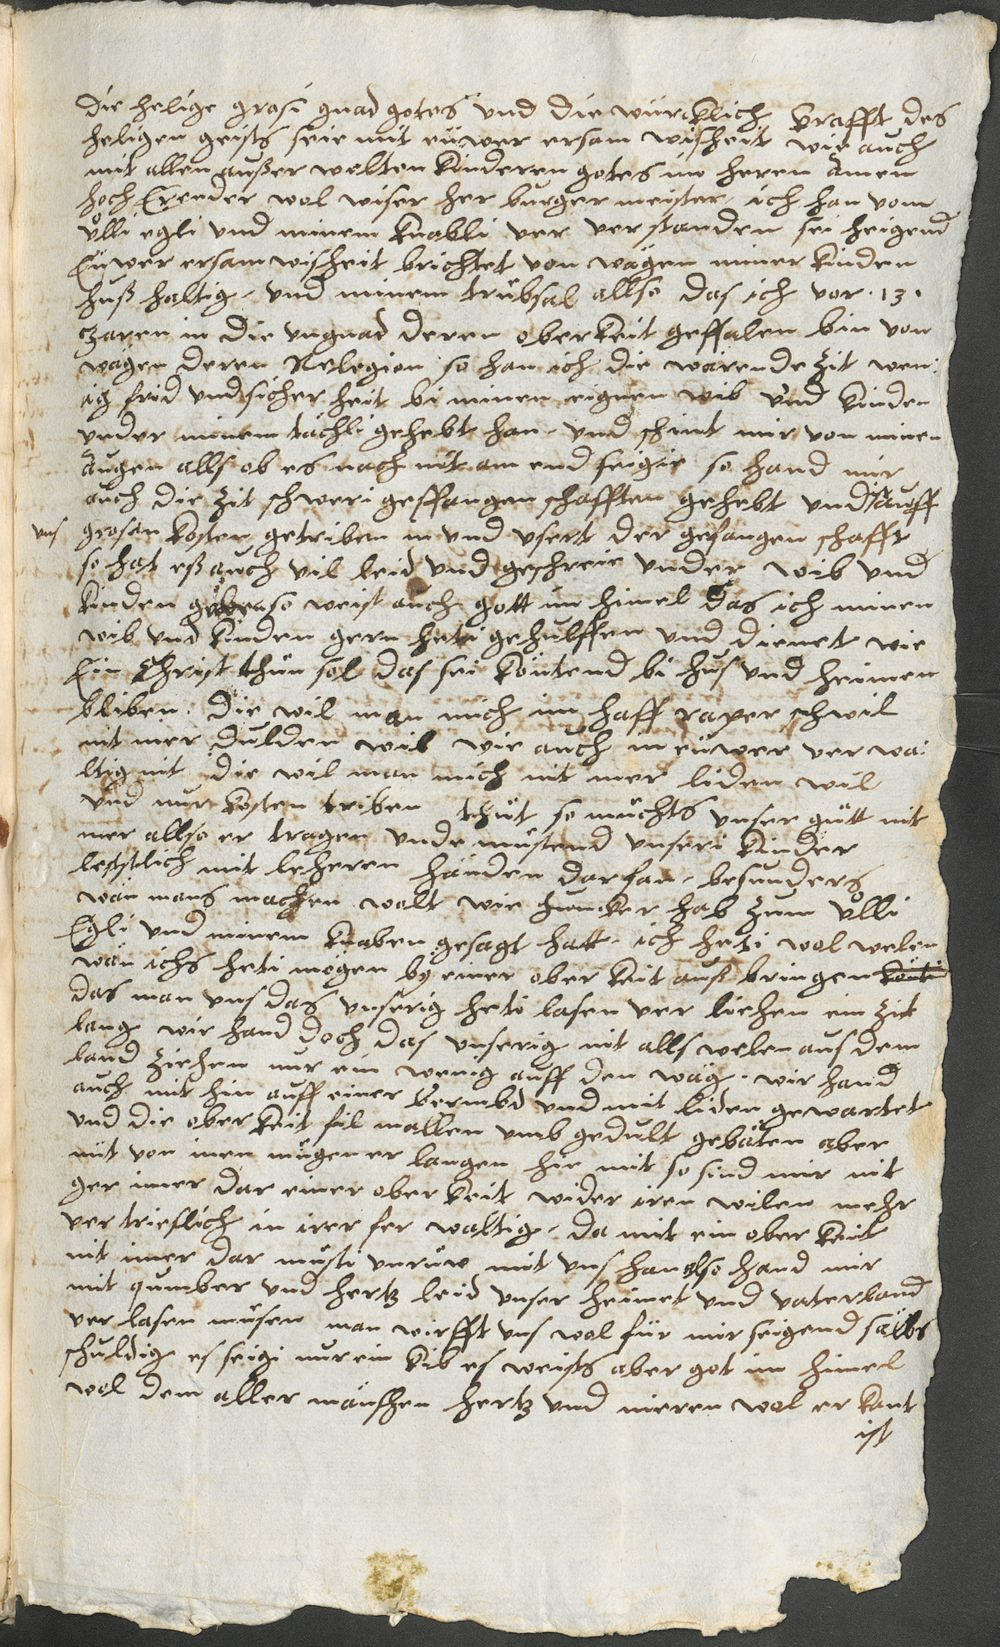 die helige grosi gnad gotes und die würcklich krafft des
heligen geists seie mit eüwer ersam wisheit wie auch
mit allen außer welten kinderen gotes im heren Amen
hoch Erender wol wiser her burgermeister, ich han vom
ůlli egli und minem knabli ver verstanden sei heigend
Eüwer ersam wisheit brichtet von wägen miner kinden
huß haltig, und minem trübsal allso das ich vor .13.
Jaren in die ungnad deren oberkeit geffalen bin von
wägen deren Relegion so han ich die wärende zit weni
ig frid und sicher heit bi minen eignen wib und kinden
under minem tächli gehebt han, und schint mir von minen
augen alls ob es nach nit am end seigie so hand mir
auch die zit schweri geffangen schafften gehebt und auff
uns grosen kosten getriben in und usert der gefangen schafft
so hat eß auch vil leid und geschreie under wib und
kinden gäben so weist auch gott im himel das ich minen
wib und kinden gern heti gehulffen und dienet wie
Ein Christ thůn sol das sei köntend bi hus und heimen
bliben. Die wil man mich im hoff raper schwil
nit mer dulden wil wie auch in eüwer verwa
ltig nit die wil man mich nit mer liden wil
und nur kosten triben thůt so möchts unser gůtt nit
mer allso er tragen unde müstend unseri kinder
lestlich mit leheren handen darfan, besunders
wan mans machen wolt wie Juncker hab zum ůlli
Egli und minem knaben gesagt hatt, ich heti wol welen
wan ichs heti mögen by einer ober keit auß bringen
das man uns das unserig heti lasen ver liehen ein zit
lang wir hand doch das unserig nit alls welen aus dem
land ziehen nur ein wenig auff den wäg. wir hand
auch mit hin auff einer bermbd und mit liden gewartet
und die ober keit fil mallen umb gedult gebäten aber
nüt von inen mügen er langen hie mit so sind mir nit
ger imer dar einer ober keit wider iren wilen mehr
ver trießlich in irer fer waltig, da mit ein ober keit
nit imer dar müsti unrůw mit uns han also hand mir
mit qumber und hertz leid unser heimet und vaterland
ver lasen müsen man wirfft uns wol für mir seigend sälbs
schuldig es seigi nur ein kib es weists aber got im himel
wol dem aller mänschen hertz und nieren wol er kant
ist